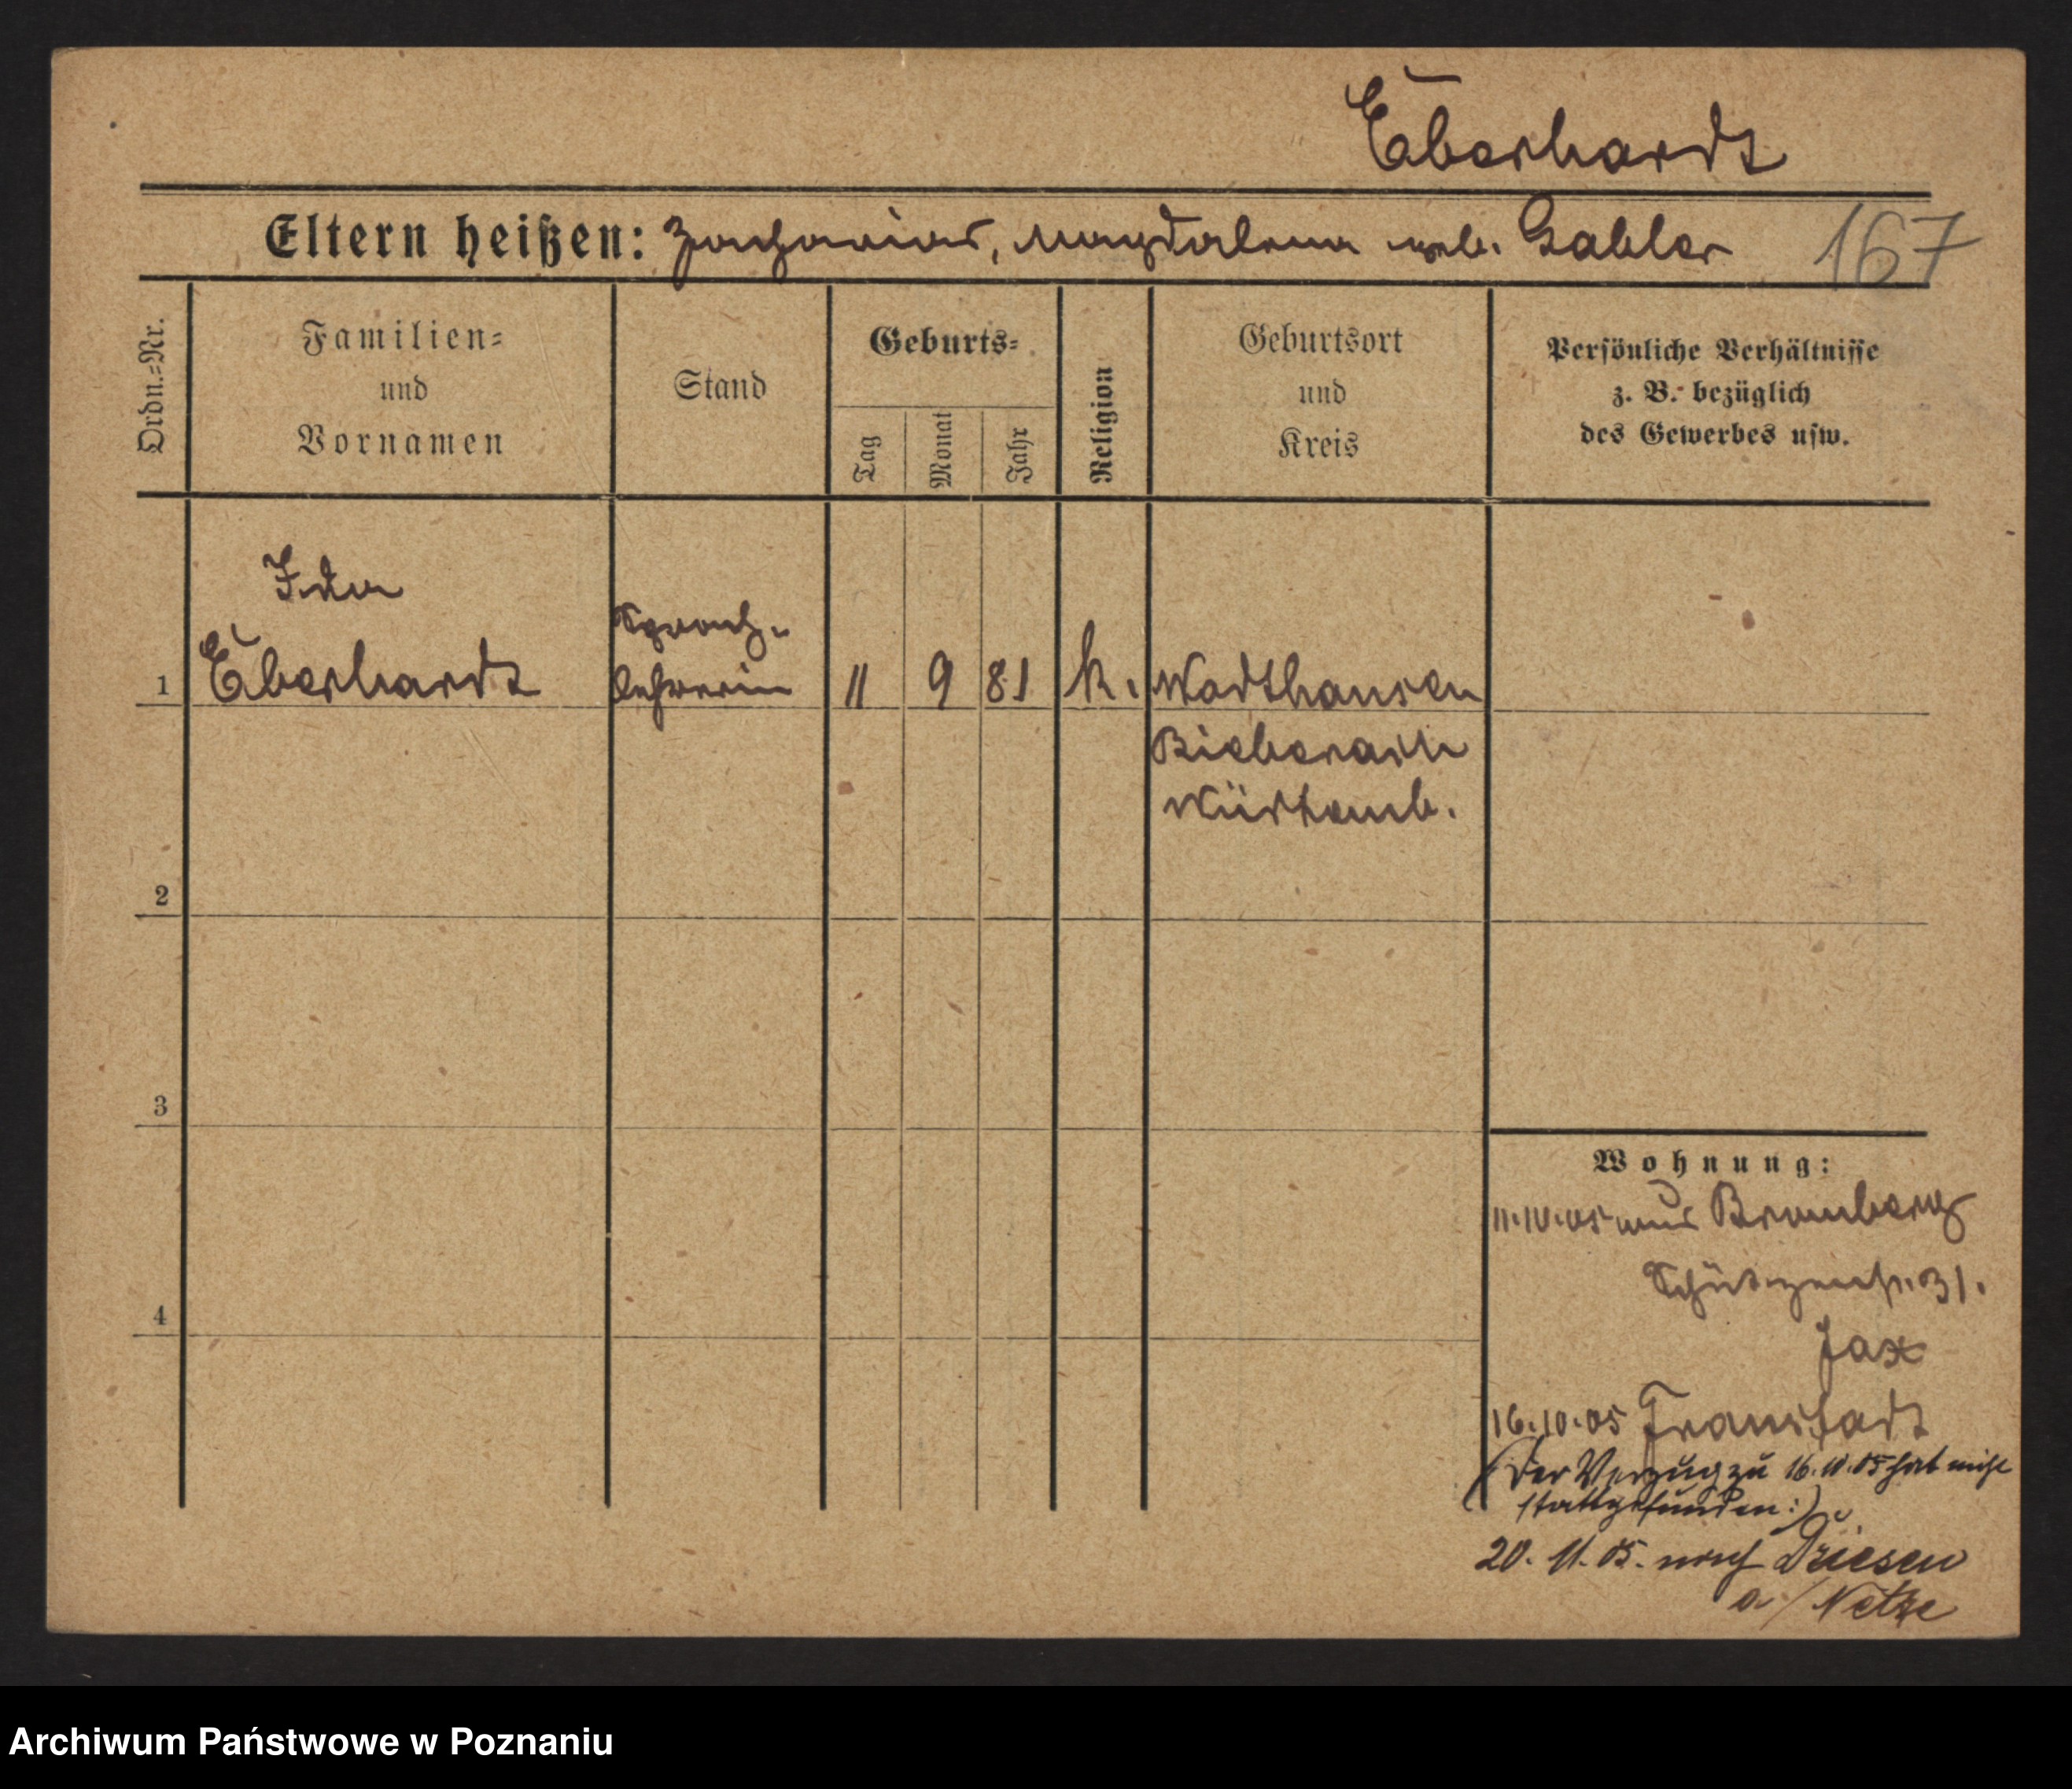 Eberhardt
Eltern heißen: Zacharias, Magdalena geb. Gabler
167
Ordn.-Nr.
Familien-
und
Vornamen
Stand
Geburts-
Tag
Monat
Jahr
Religion
Geburtsort
und
Kreis
Persönliche Verhältnisse
z. B. bezüglich
des Gewerbes usw.
Ida
Sprach-
1 Eberhardt lehrerin 11 9 81 k. Wadthausen
Bieberach
Würtemb.
2
3
4
Wohnung:
11.10.05 aus Bromberg
Schützenstr. 31.
Jax
16.10.05 Fraustadt
(Der Verzug zu 16.10.05 hat nicht
stattgefunden:)
20. 11. 05. nach Driesen
a/Netze
Archiwum Państwowe w Poznaniu